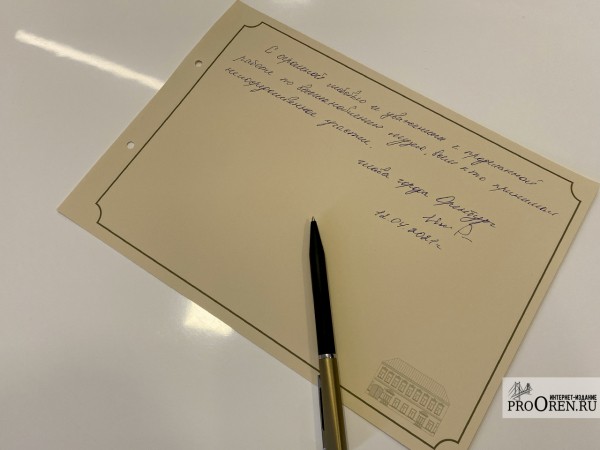 С огромной любовью и уважением к проделанной
работе по восстановлению музея, всем кто принимал
непосредственное участие.
глава города Оренбурга
12.04.2021г.
ИНТЕРНЕТ-ИЗДАНИЕ
PROOREN.RU